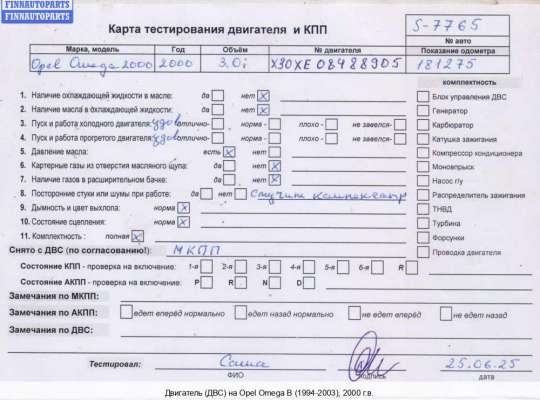 FINNAUTOPARTS
FINNAUTOPARTS
Карта тестирования двигателя и КПП
S-7765
№ авто
Марка, модель Год Объём № двигателя Показание одометра
Opel Omega 2000 2000 3.0i X30XE 08488905 181275
комплектность
1. Наличие охлаждающей жидкости в масле: да нет x
Блок управления ДВС
2. Наличие масла в охлаждающей жидкости: да нет x
Генератор
3. Пуск и работа холодного двигателя: удов отлично- норма - плохо - не завелся-
Карбюратор
4. Пуск и работа прогретого двигателя: удов отлично- норма - плохо - не завелся-
Катушка зажигания
5. Давление масла: есть x нет
Компрессор кондиционера
6. Картерные газы из отверстия масляного щупа: да нет x
Моновпрыск
7. Наличие газов в расширительном бачке: да нет x
Насос г/у
8. Посторонние стуки или шумы при работе: да нет Стучит компенсатор
Распределитель зажигания
9. Дымность и цвет выхлопа: норма x
ТНВД
10. Состояние сцепления: норма x
Турбина
11. Комплектность : полная x
Форсунки
Снято с ДВС (по согласованию!): МКПП
Проводка двигателя
Состояние КПП - проверка на включение: 1-я 2-я 3-я 4-я 5-я 6-я R
Состояние АКПП - проверка на включение: P R N D
Замечания по МКПП:
Замечания по АКПП: едет вперёд нормально едет назад нормально не едет вперёд не едет назад
Замечания по ДВС:
Тестировал: Саша 25.06.25
ФИО подпись дата
Двигатель (ДВС) на Opel Omega B (1994-2003), 2000 г.в.